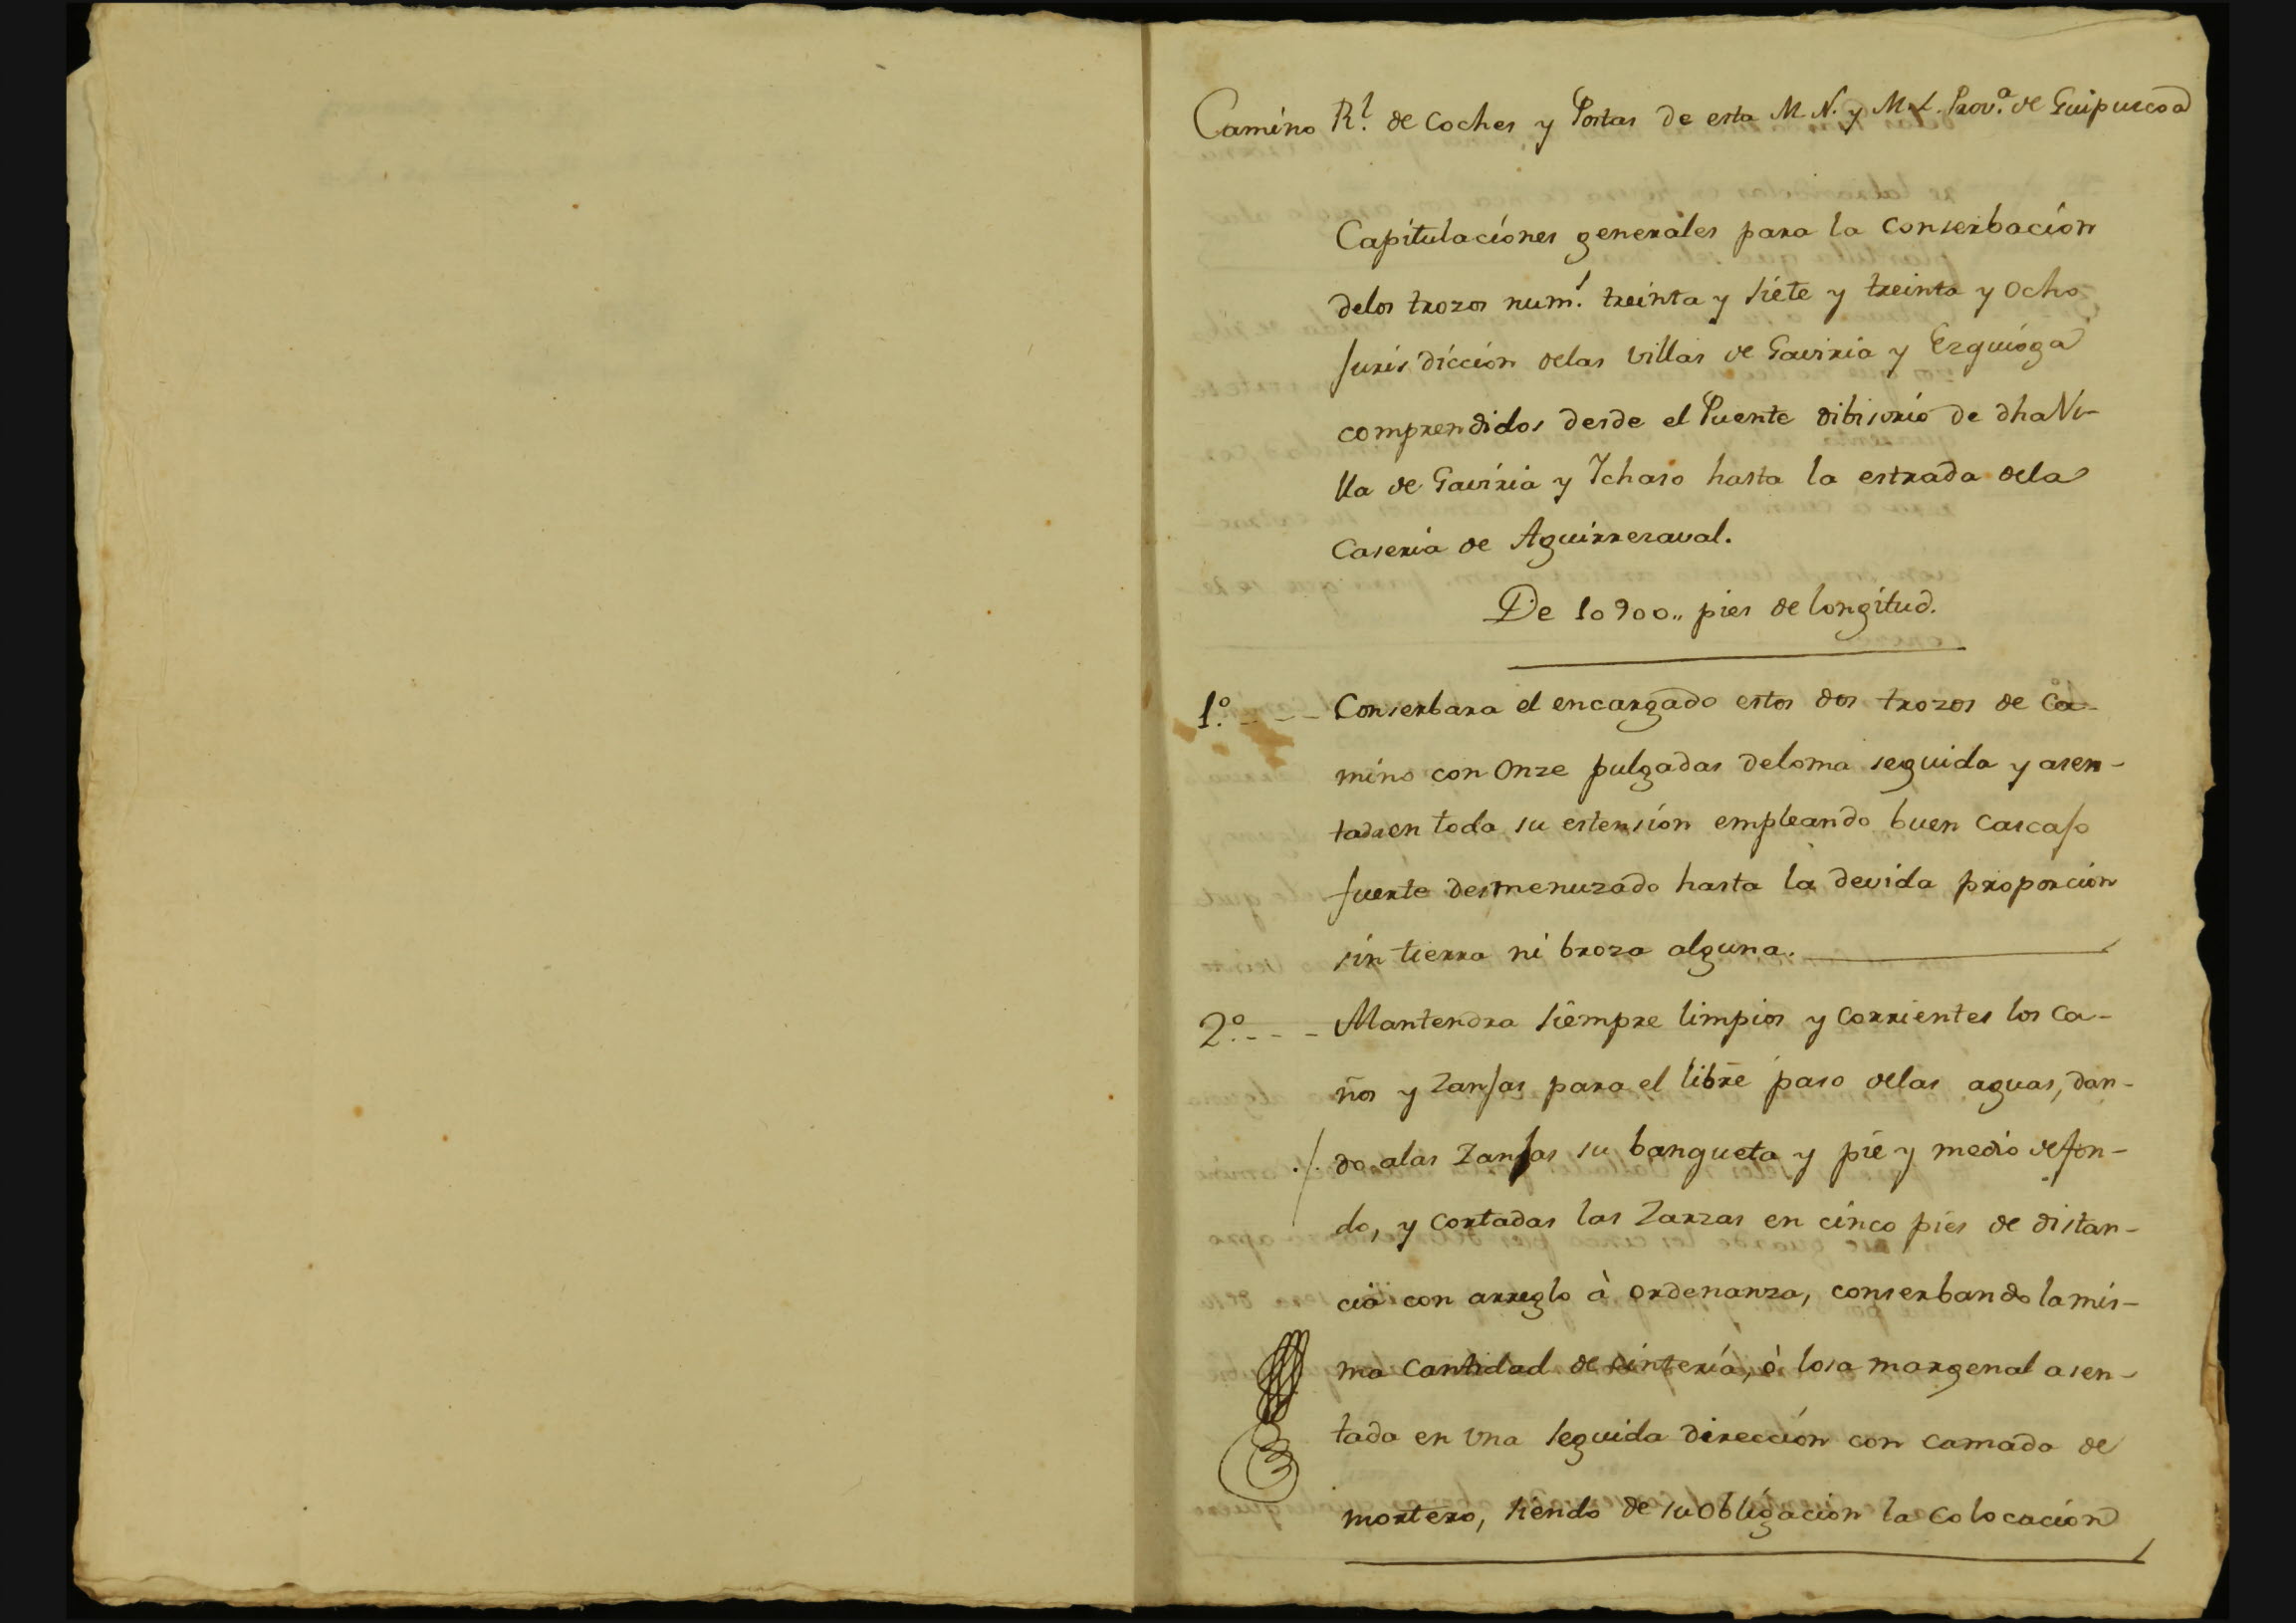 Camino Rl. de Coches y Postas de esta M. N. y M. L. Prov.a de Guipuzcoa
Capitulaciones generales para la Conserbación
delos trozos num.s treinta y siete y treinta y ocho
Jurisdicción delas Villas de Gaviria y Ezquioga
comprendidos desde el Puente dibisorio de dha Vi-
lla de Gaviria y Ichaso hasta la estrada dela
Caseria de Aguirrezaval.
De 10900,, pies de longitud.
1.o - - - Conserbara el encargado estos dos trozos de Ca-
mino con Onze pulgadas deloma seguida y asen-
tada en toda su estensión empleando buen Cascajo
fuerte desmenuzado hasta la devida proporción
sin tierra ni broza alguna.
2.o - - - Mantendra siempre limpios y Corrientes los Ca-
ños y Zanjas para el libre paso delas aguas, dan-
./. do alas Zanjas su banqueta y pie y medio defon-
do, y Cortadas las Zarzas en cinco pies de distan-
cia con arreglo à Ordenanza, conserbando la mis-
ma Cantidad de sinteria, ò losa margenal asen-
tada en Una seguida dirección con Camada de
mortero, siendo de su Obligación la Colocación